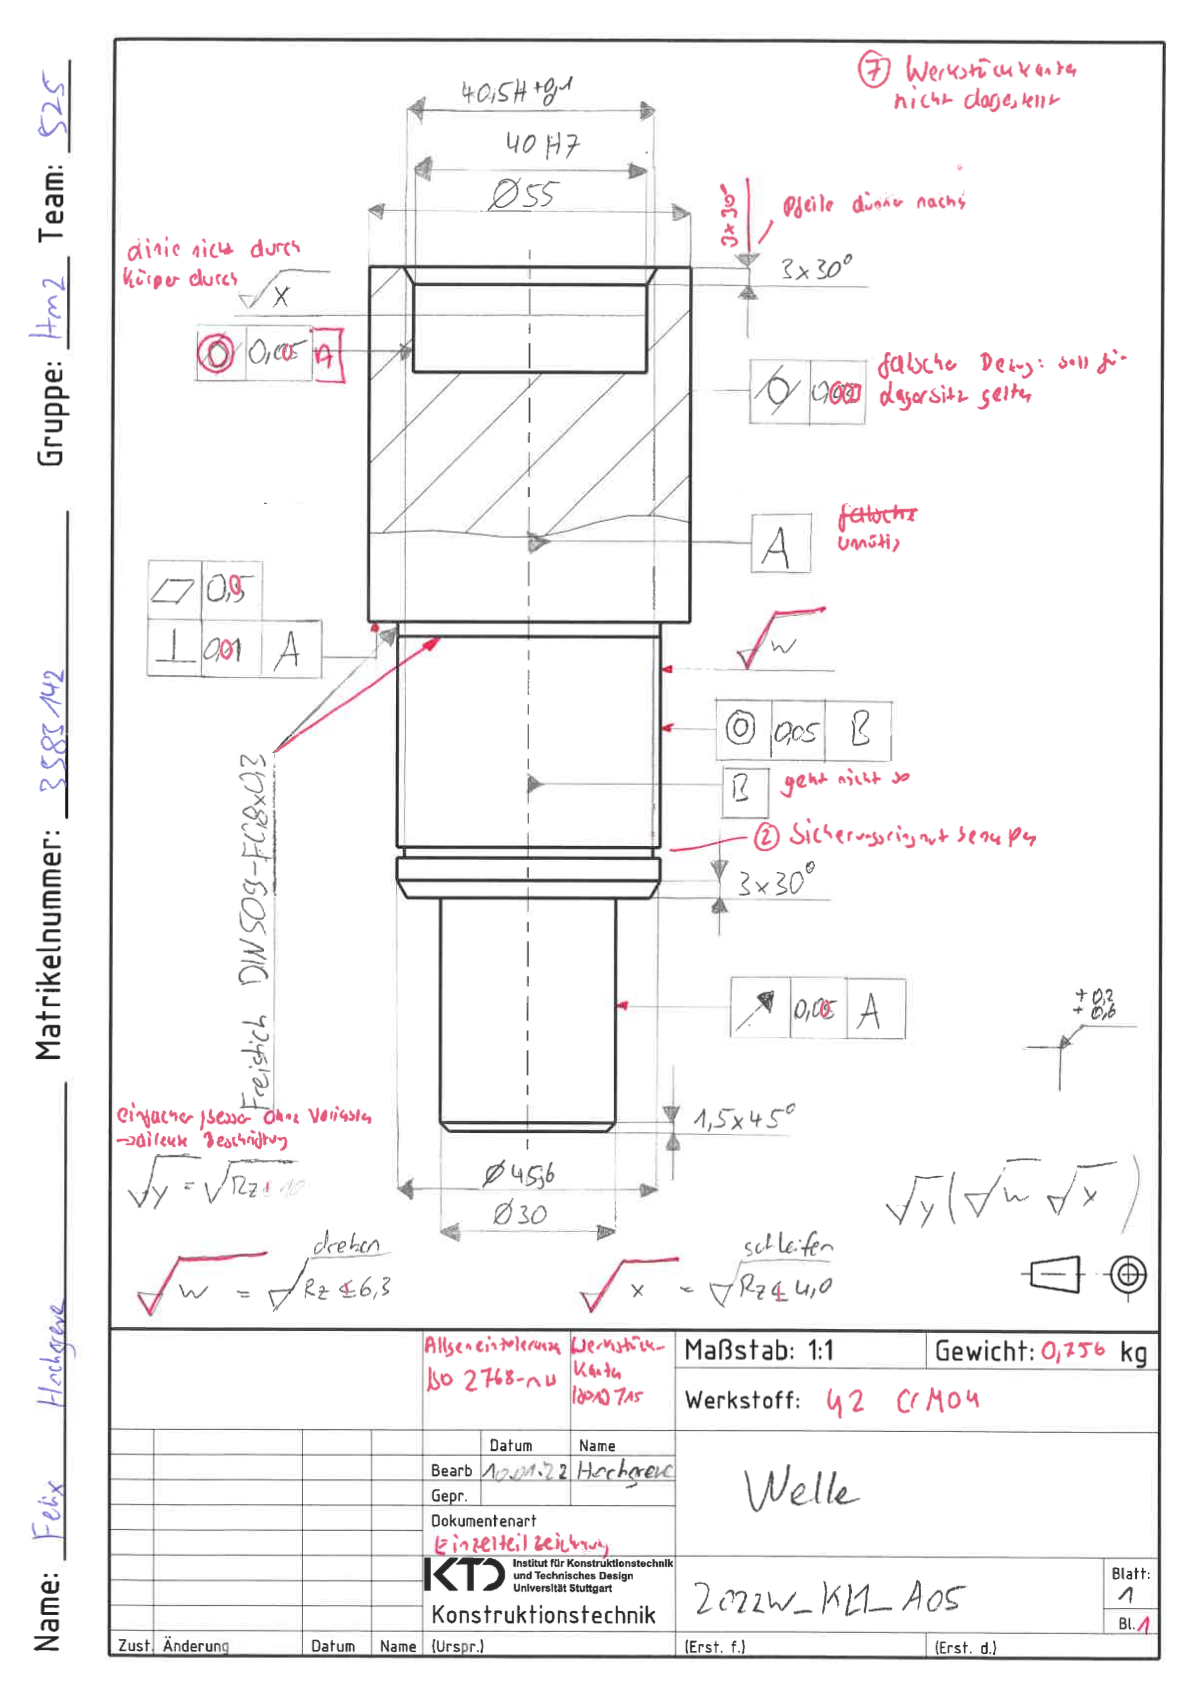 Name: Felix Hochgreve Matrikelnummer: 3583142 Gruppe: Hm2 Team: S25
7 Werkstückkanten
nicht dargestellt
40,5H +0,1
40 H7
Ø55
3x30°
Pfeile dünner nachs
3x30°
Linie nicht durch
Körper durch
x
0,005 A
falscher Bezug: soll für
Lagersitz gelten
A
falsche
unnötig
0,05
0,01 A
w
0,05 B
B
geht nicht so
2 Sicherungsringnut bemaßen
3x30°
Freistich DIN 509-F0,8x0,3
0,05 A
+0,2
+0,6
einfacher / besser ohne
→ direkte Beschriftung
1,5x45°
y = Rz 10
Ø45,6
Ø30
y ( w x )
drehen
w = Rz ≤ 6,3
schleifen
x = Rz ≤ 4,0
Allgemeintoleranz
ISO 2768-mH
Werkstück-
kanten
ISO 13715
Maßstab: 1:1
Gewicht: 0,756 kg
Werkstoff: 42 CrMo4
Datum Name
Bearb 10.01.22 Hochgreve
Gepr.
Welle
Dokumentenart
Einzelteilzeichnung
KTD Institut für Konstruktionstechnik
und Technisches Design
Universität Stuttgart
Konstruktionstechnik
2022W_KL1_A05
Blatt:
1
Bl. 1
Zust. Änderung Datum Name (Urspr.) (Erst. f.) (Erst. d.)